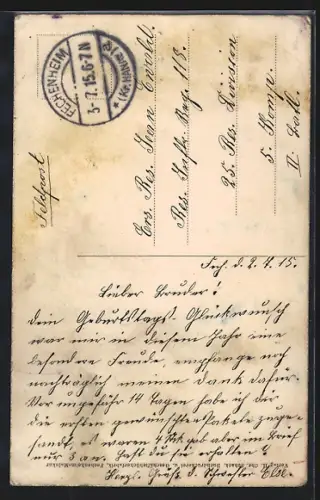 FECHENHEIM
3.7.15.6-7N
*(KR.HANAU)a
Feldpost
Ers. Res. Jean
Res. Inftr. Reg. 118.
25. Res. Division
5. Komp.
II Batl.
Fech. d. 2.7.15.
Lieber Bruder!
Dein Geburtstags-Glückwunsch
war mir in diesem Jahr eine
besondere Freude, empfange noch
nachträglich meinen Dank dafür.
Vor ungefähr 14 Tagen habe ich dir
die ersten gewünschten Pakete zuge-
sandt, es waren 4 Stk gab aber im Brief
nur 3 an. Hast du sie erhalten?
Herzl. Gruß d. Schwester Else.